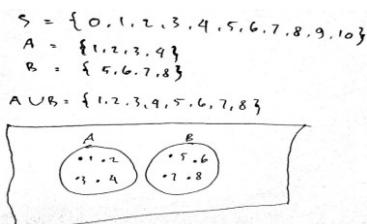 S = {0.1.2.3.4.5.6.7.8.9.10}
A = {1.2.3.4}
B = {5.6.7.8}
A∪B = {1.2.3.4,5.6.7,8}
A B
•1 •2 •5 •6
•3 •4 •7 •8